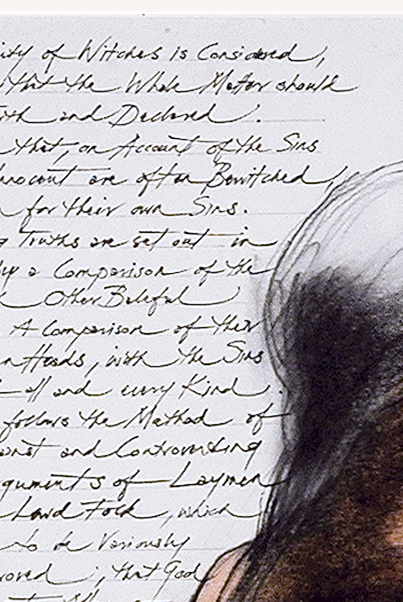 ity of Witches is Considered,
that the Whole Matter should
and Declared.
that, on Account of the Sins
nnocent are often Bewitched,
for their own Sins.
g Truths are set out in
by a Comparison of the
Other Baleful
A Comparison of their
n Heads, with the Sins
all and every Kind
follows the Method of
and Controverting
guments of Laymen
Lewd Folk, which
to be Variously
roved; that God